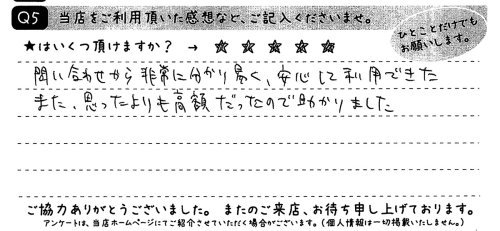 Q5 当店をご利用頂いた感想など、ご記入くださいませ。
ひとことだけでも
お願いします。
★はいくつ頂けますか? → ☆ ☆ ☆ ☆ ☆
問い合わせから非常に分かり易く、安心して利用できた
また、思ったよりも高額だったので助かりました
ご協力ありがとうございました。 またのご来店、お待ち申し上げております。
アンケートは、当店ホームページにてご紹介させていただく場合がございます。(個人情報は一切掲載いたしません。)